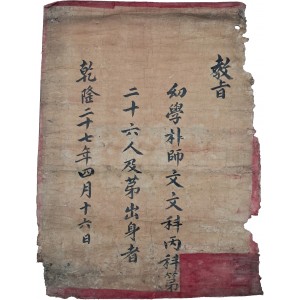 教旨
幼學朴師文文科丙科第
二十六人及第出身者
乾隆二十七年四月十六日